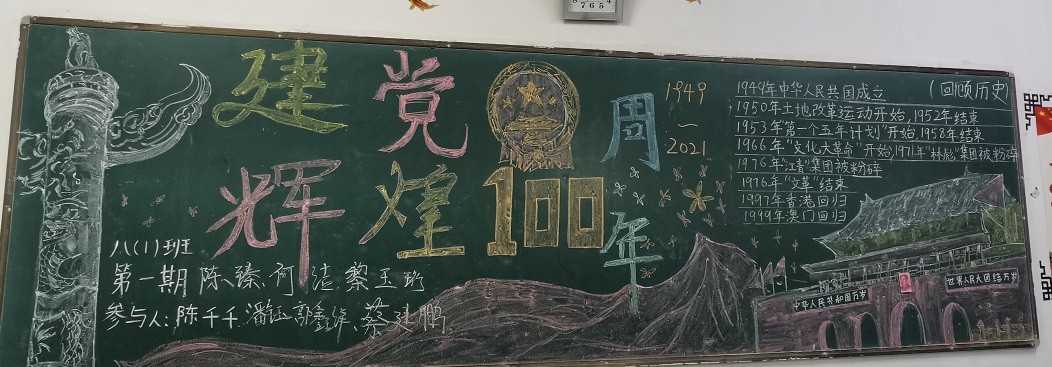 建党
辉煌
100
周年
1949
—
2021
(回顾历史
1949年中华人民共和国成立
1950年土地改革运动开始,1952年结束
1953年"第一个五年计划"开始,1958年结束
1966年"文化大革命"开始,1971年"林彪"集团被粉碎
1976年"江青"集团被粉碎
1976年"文革"结束
1997年香港回归
1999年澳门回归
八(1)班
第一期 陈臻 何洁 黎玉
参与人:陈千千 蔡廷鹏
中华人民共和国万岁
世界人民大团结万岁
765